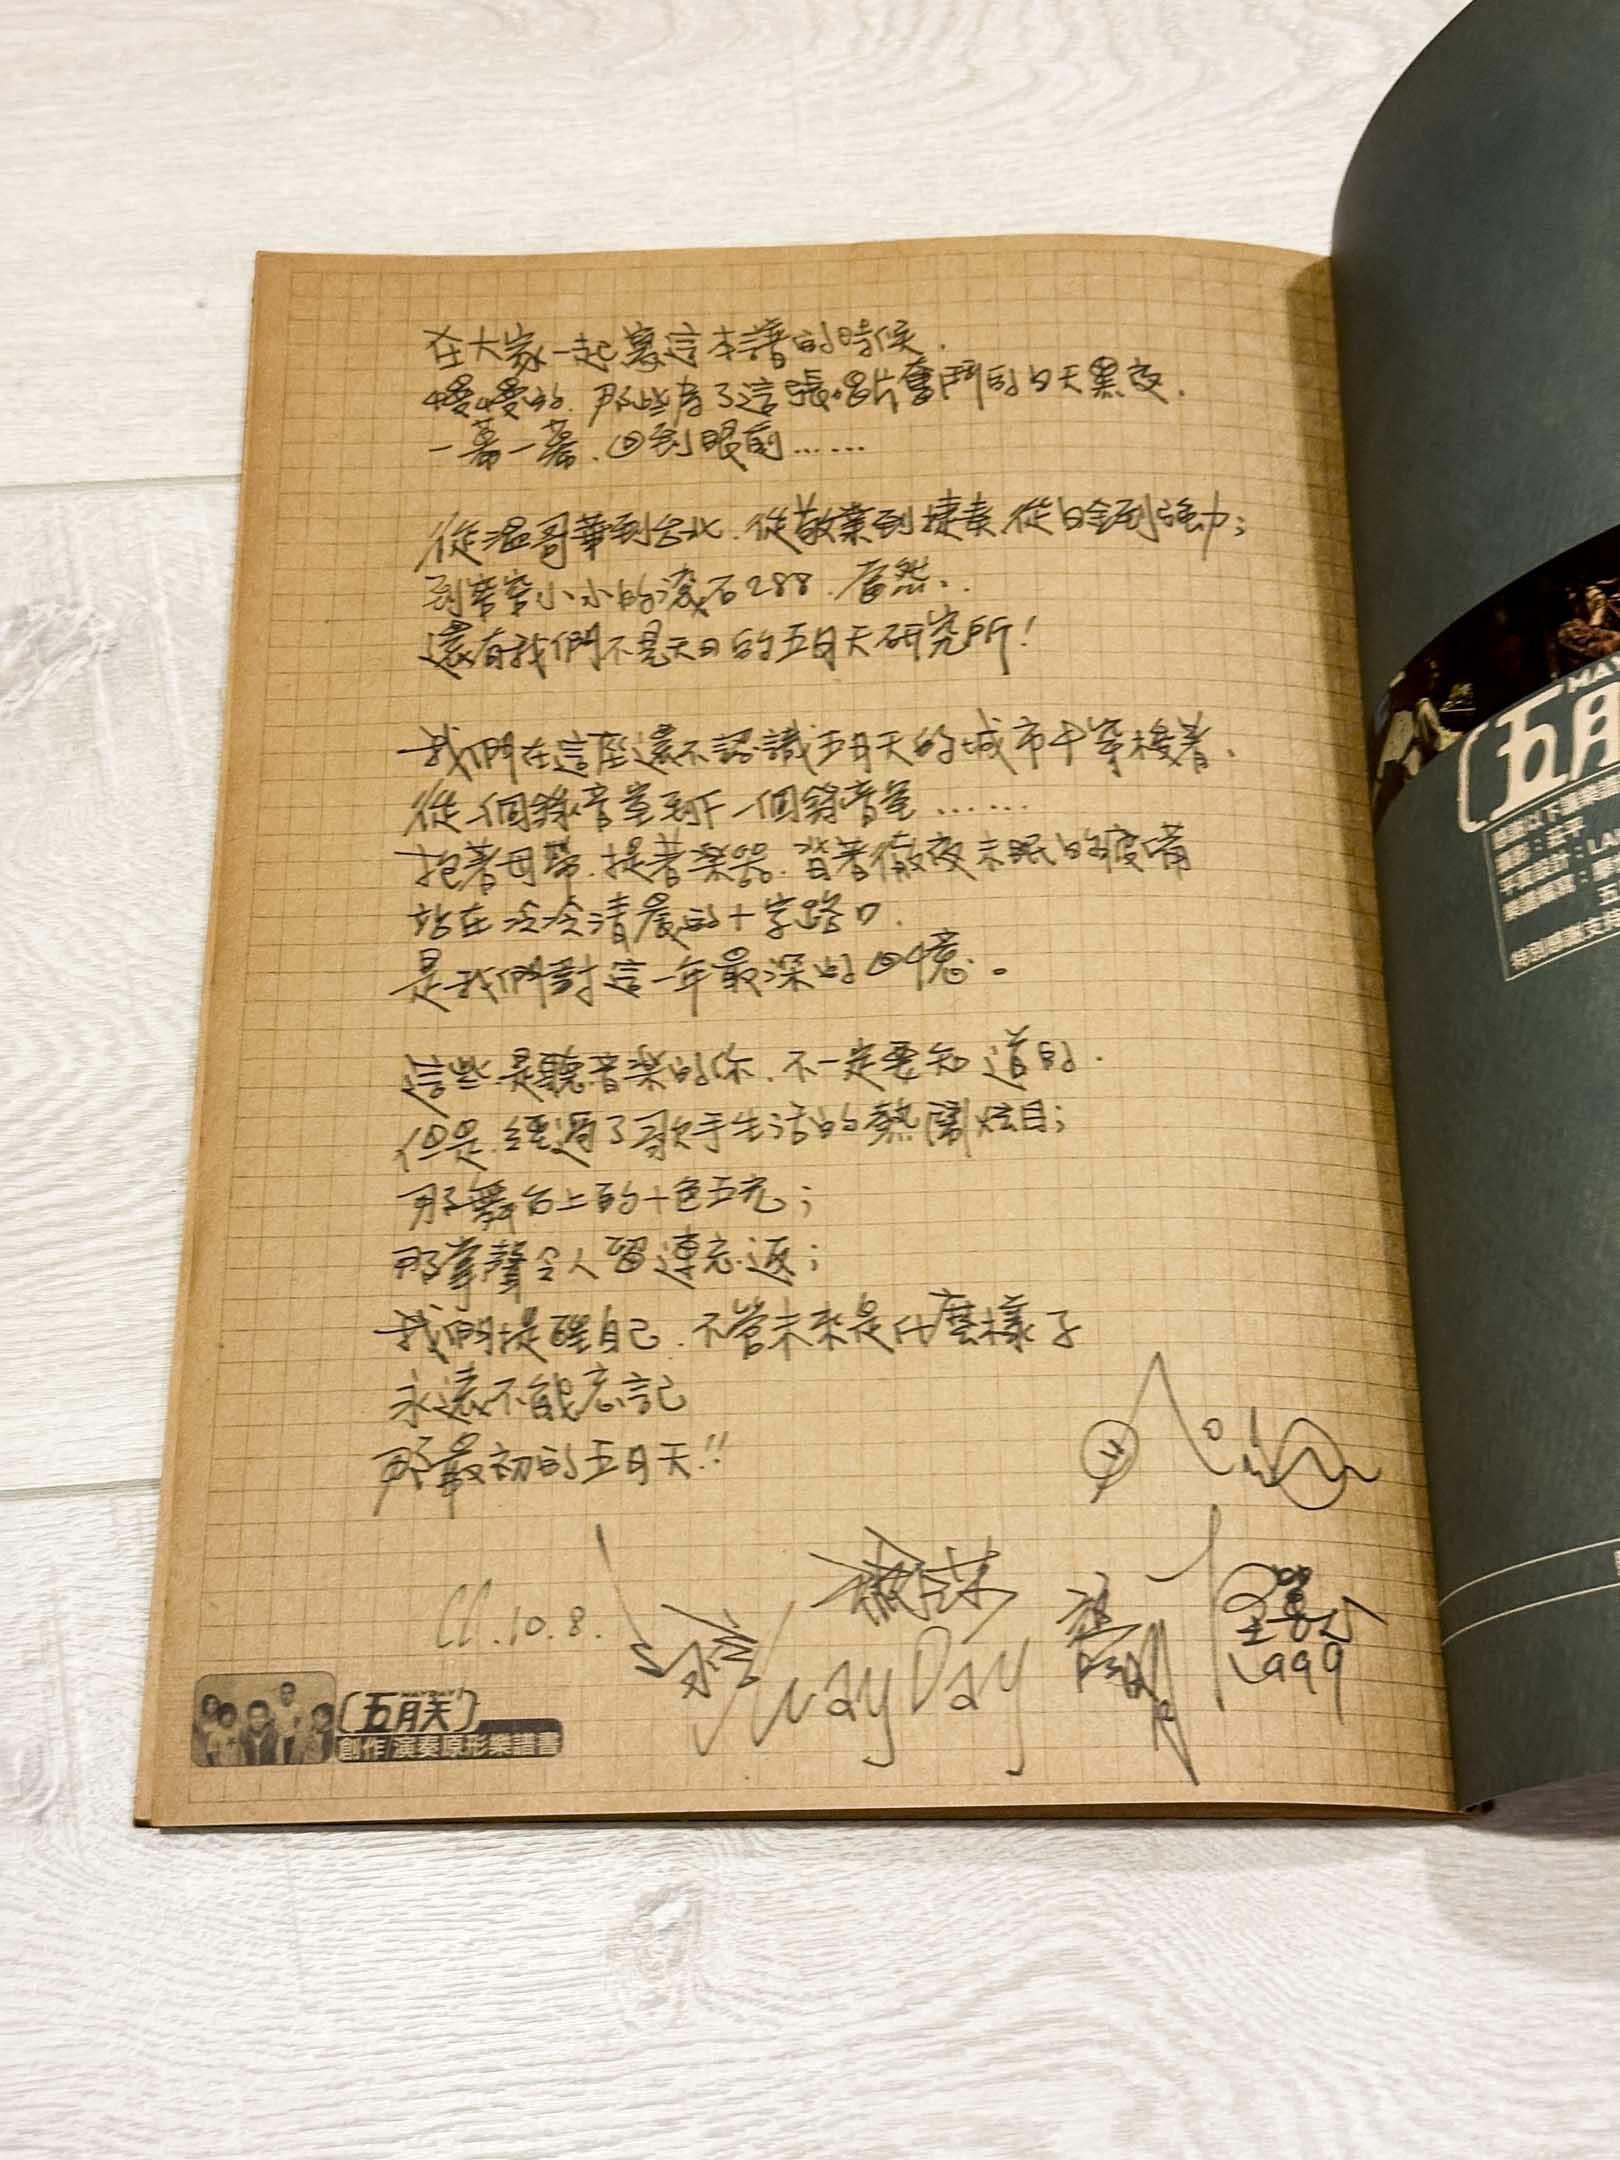 在大家一起寫這本譜的時候.
慢慢的.那些為了這張唱片奮鬥的白天黑夜.
一幕一幕.回到眼前……
從溫哥華到台北.從敬業到捷奏.從白金到強力；
到窄窄小小的滾石288.當然..
還有我們不見天日的五月天研究所！
我們在這座還不認識五月天的城市中穿梭著、
從一個錄音室到下一個錄音室……
抱著母帶.提著樂器.背著徹夜未眠的疲憊
站在冷冷清晨的十字路口.
是我們對這一年最深的回憶。
這些是聽音樂的你.不一定要知道的.
但是.經過了歌手生活的熱鬧炫目；
那舞台上的十色五光；
那掌聲令人留連忘返；
我們提醒自己.不管未來是什麼樣子
永遠不能忘記
那最初的五月天!!
10.8.
MayDay
1999
MAYDAY
五月天
創作/演奏原形樂譜書
MAY
五月